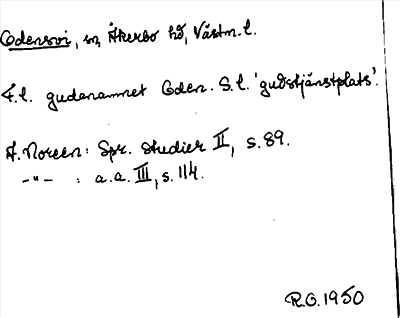 Odensvi, sn, Åkerbo hd, Västm. l.
F. l. gudanamnet Oden. S. l. 'gudstjänstplats'.
A. Noreen: Spr. studier II, s. 89.
-"- : a. a. III, s. 114.
R.O. 1950